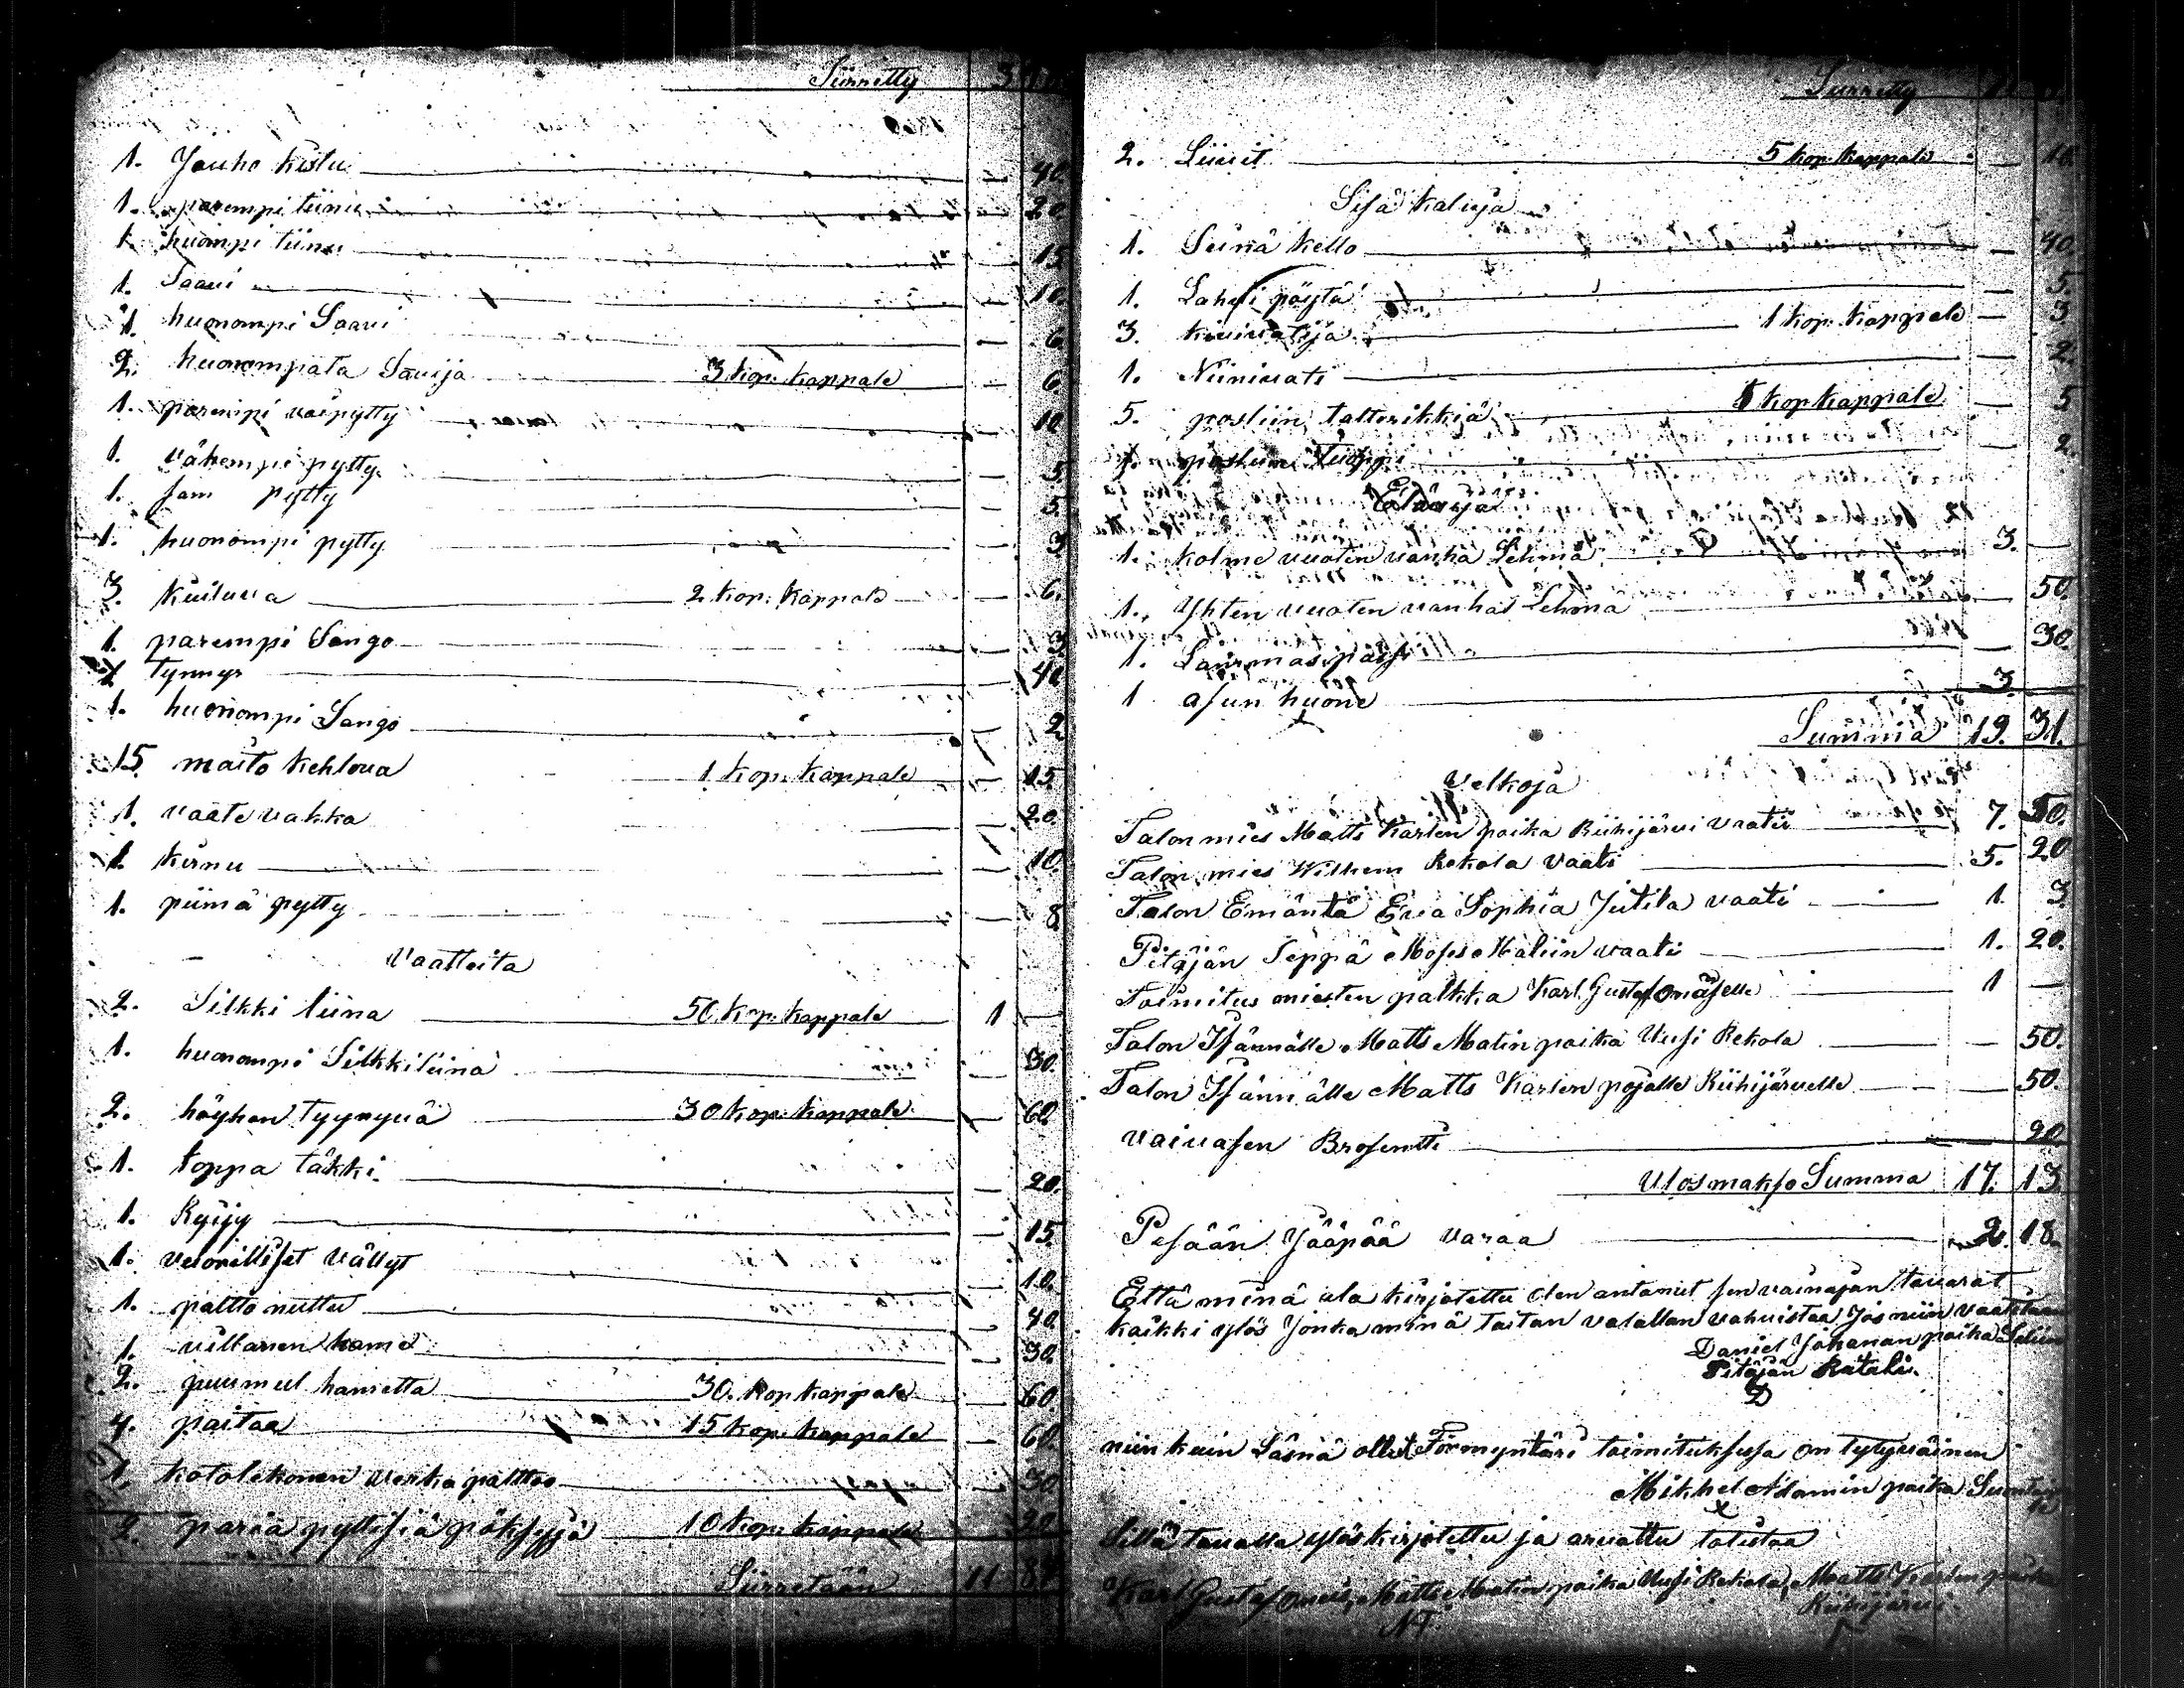 Siirretty 3
1. Jauho kistu — 40.
1. parempi tiinu — 20
1. huompi tiinu — 15
1. Saavi — 10.
1. huonompi Saavi — 6
2. huonompata Saavija 3 kop. kappale — 6
1. parempi voipytty — 10
1. vähempi pytty — 5
1. sam pytty — 5.
1. huonompi pytty — 3
3. kuiluva 2 kop. kappale — 6.
1. parempi Sango — 3
1 tynnyr — 40
1. huonompi Sango — 2
15. maito kehloua 1 kop. kappale — 15
1. vaate vakka — 20
1. kirnu — 10.
1. piimä pytty — 8
Vaatteita
2. Silkki liina 50 kop. kappale 1 —
1. huonompi Silkkiliina — 30.
2. höyhen tyynyä 30 kop. kappale — 60
1. toppa täkki — 20.
1. Ryijy — 15
1. vällyt — 10.
1. paltto nuttu — 40.
1. villanen hame — 30.
2. puumul hametta 30. kop kappale — 60.
4. paitaa 15 kop. kappale — 60.
1. kotolekonen verka palttoo — 30
2. paria pöksyjä 10 kop. kappale — 20
Siirretään 11 84
Siirretty 11
2. Liinit 5 kop. kappale — 10
Sisä kaluja
1. Seinä kello — 40.
1. Lahesi pöytä — 5.
3. 1 kop. kappale — 3
1. Niinivati — 2.
5. posliin talterikkiä 1 kop kappale — 5
1. posliini Tuoppi — 2.
Eläviä
1. kolme vuoten vanha Lehmä 3. —
1. Yhten vuoten vanha Lehmä — 50.
1. — 30.
1 asun huone 3.
Summa 19. 31.
Velkoja
Talon mies Matts Karlen poika Riihijärvi vaatii 7. 50.
Talon mies Wilhem Rekola vaati 5. 20
Talon Emäntä Eva Sophia Jutila vaati 1. 3
Pitäjän Seppä Moses Malin vaati 1. 20.
Toimitus miesten palkka Karl Gustaf 1 —
Talon Isännälle Matts Matin poika Uusi Rekola — 50.
Talon Isännälle Matts Karlen pojalle Riihijärvelle — 50.
Vaivasen Brosentti — 20
Ulosmakso Summa 17. 13
Pesään Jääpää varaa 2. 18.
Että minä ala kirjotettu olen antanut sen vainajan tavarat
kaikki ylös Jonka minä taitan valallan vahvistaa Jos niin vaatitaan
Daniel Johanan poika Selin
Pitäjän Rätäli
D
niin kuin Läsnä ollut Förmyntäri toimituksesa on tytyväinen
Mikkel Adamin poika
Sillä tavalla ylös kirjotettu ja arvattu totistaa
Karl Gustaf Matts Matin poika Uusi Rekola, Matts Karlen poika
Riihijärvi.